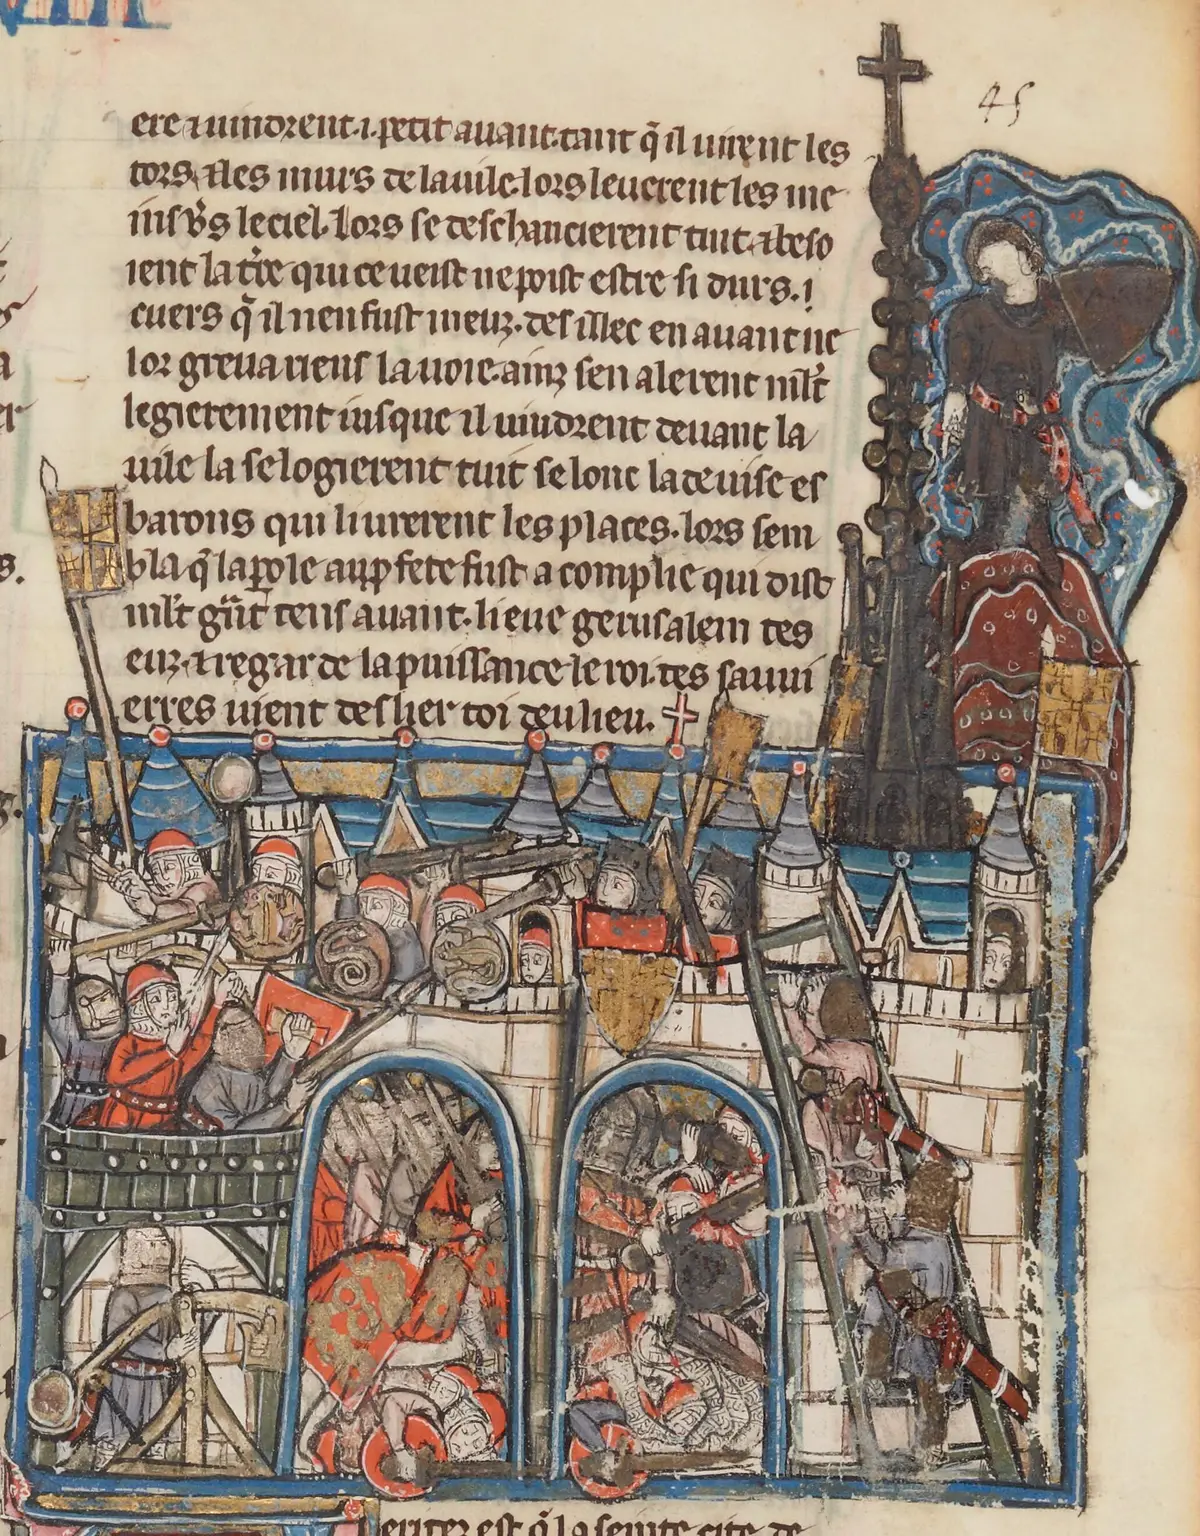 45
ere ⁊ uindrent .i. petit auant. tant q̃ il uirent les
tors ⁊ les murs de la uile. lors leuerent les me
ins v̾s le ciel. Lors se deschaucierent tuit ⁊ beso
ient la t̾re qui ce ueist ne poist estre si durs .i.
cuers q̃ il nen fust meuz. des illec en auant ne
lor greua riens la uoie. ainz sen alerent ml̃t
legierement iusque il uindrent deuant la
uile la se logierent tuit selonc la deuise es
barons qui liurerent les places. lors sem
bla q̃ la ꝑole au ꝓfete fust acomplie qui dist
ml̃t gñt tens auant. lieue gerusalem tes
euz. ⁊ regarde la puissance le roi. tes sauui
erres uient deslier toi deu lieu.
eritez est q̃ la seinte cite de